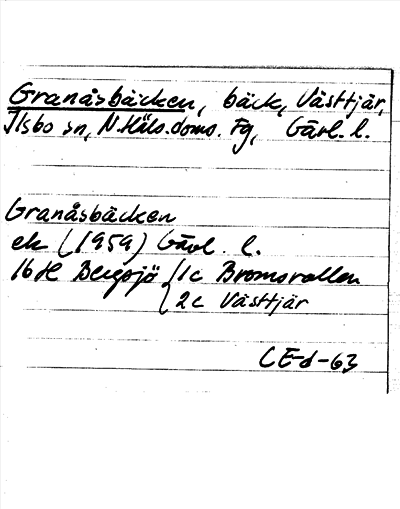 Granåsbäcken, bäck, Västtjär,
Ilsbo sn, N.Häls.doms. Fg, Gävl. l.
Granåsbäcken
ek (1959) Gävl. l.
16H Bergsjö { 1c Bromsvallen
2c Västtjär
CE-d-63